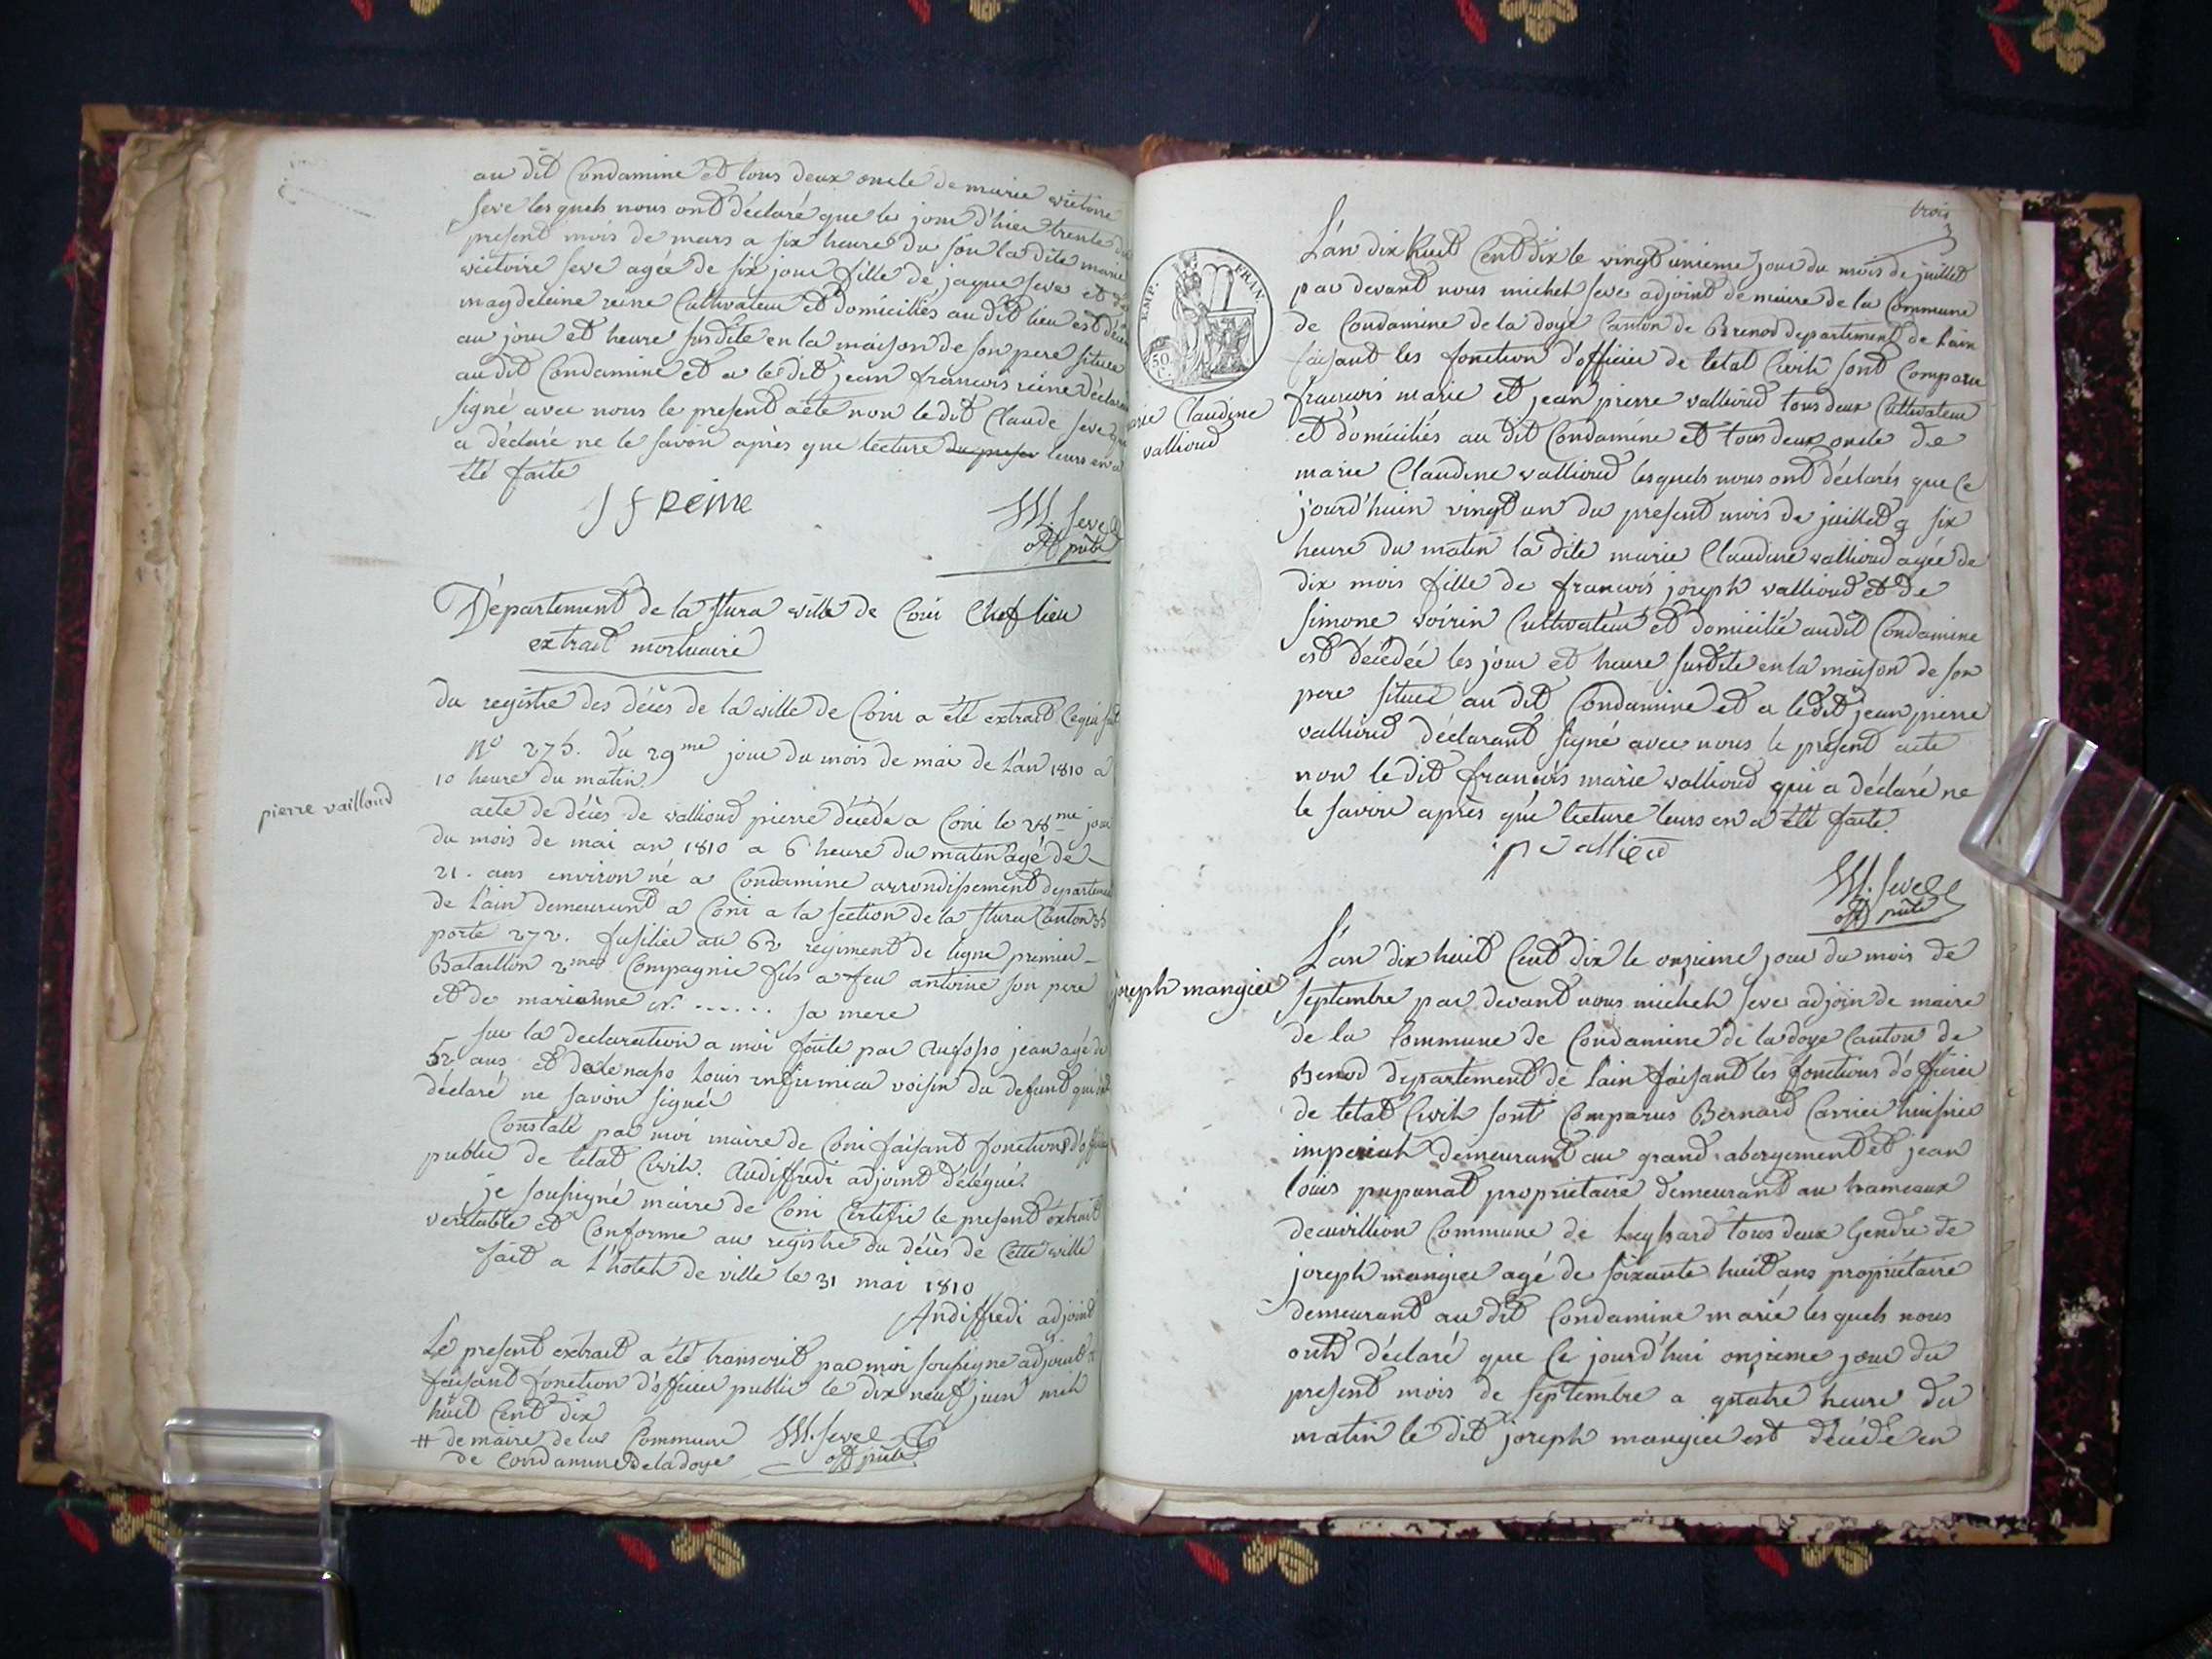 au dit Condamine et tous deux oncle de marie victoire
seve les quels nous ont déclaré que le jour d'hier trente du
present mois de mars a six heure du soir la dite marie
victoire seve agée de six jour fille de jaque seve et de
magdeleine reine Cultivateur et domiciliés au dit lieu est
au jour et heure susdite en la maison de son pere situee
au dit Condamine et a le dit jean francois reine déclarant
signé avec nous le present acte non le dit Claude seve qui
a déclaré ne le savoir après que lecture du presen leurs en a
été faite
J f REINE
M. Seve
off publ
Département de la Stura ville de Coni Chef lieu
extrait mortuaire
du registre des décès de la ville de Coni a été extrait Ce qui suit
N° 275. du 29me jour du mois de mai de l'an 1810 a
10 heure du matin
pierre vailloud
acte de décès de vallioud pierre décédé a Coni le 28me jour
du mois de mai an 1810 a 6 heure du matin agé de
21. ans environ né a Condamine arrondissement departement
de l'ain demeurant a Coni a la section de la Stura Canton
porte 272. fusilier au 62 regiment de ligne premier
Bataillon 2me Compagnie fils a feu antoine son pere
et de marianne N. ...... sa mere
sur la declaration a moi faite par jean agé de
52 ans et Louis infirmier voisin du defunt qui ont
déclaré ne savoir signer
Constaté par moi maire de Coni faisant fonctions d'officier
public de l'etat Civil. Audiffredi adjoint délégué.
je soussigné maire de Coni Certifie le present extrait
veritable et Conforme au registre du décès de Cette ville
fait a l'hotel de ville le 31 mai 1810
Audiffredi adjoint
Le present extrait a été transcrit par moi soussigné adjoint #
faisant fonction d'officier public le dix neuf juin mil
huit Cent dix
# de maire de la Commune
de Condamine de la doye
M. Seve
off publ
trois
3
EMP. FRAN.
50
marie Claudine
vallioud
L'an dix huit Cent dix le vingt unieme jour du mois de juillet
par devant nous michel seve adjoint de maire de la Commune
de Condamine de la doye Canton de Brenod departement de l'ain
faisant les fonction d'officier de l'etat Civil sont Comparu
francois marie et jean pierre vallioud tous deux Cultivateur
et domiciliés au dit Condamine et tous deux oncle de
marie Claudine vallioud les quels nous ont déclarés que Ce
jourd'huin vingt un du present mois de juillet a six
heure du matin la dite marie Claudine vallioud agée de
dix mois fille de francois joseph vallioud et de
simone voirin Cultivateur et domicilié au dit Condamine
est décédée les jour et heure susdite en la maison de son
pere situee au dit Condamine et a le dit jean pierre
vallioud déclarant signé avec nous le present acte
non le dit francois marie vallioud qui a déclaré ne
le savoir après que lecture leurs en a été faite.
M. Seve
off publ
joseph mangier
L'an dix huit Cent dix le onzieme jour du mois de
septembre par devant nous michel seve adjoin de maire
de la Commune de Condamine de la doye Canton de
Benod departement de l'ain faisant les fonctions d'officier
de l'etat Civil sont Comparus Bernard Carrier huissier
imperial demeurant au grand abergement et jean
louis pupunat proprietaire demeurant au hameaux
decuvillion Commune de Leyssard tous deux Gendre de
joseph mangier agé de soixante huit ans propriétaire
demeurant au dit Condamine marié les quels nous
onts déclaré que Ce jourd'hui onzieme jour du
present mois de septembre a quatre heure du
matin le dit joseph mangier est décédé en